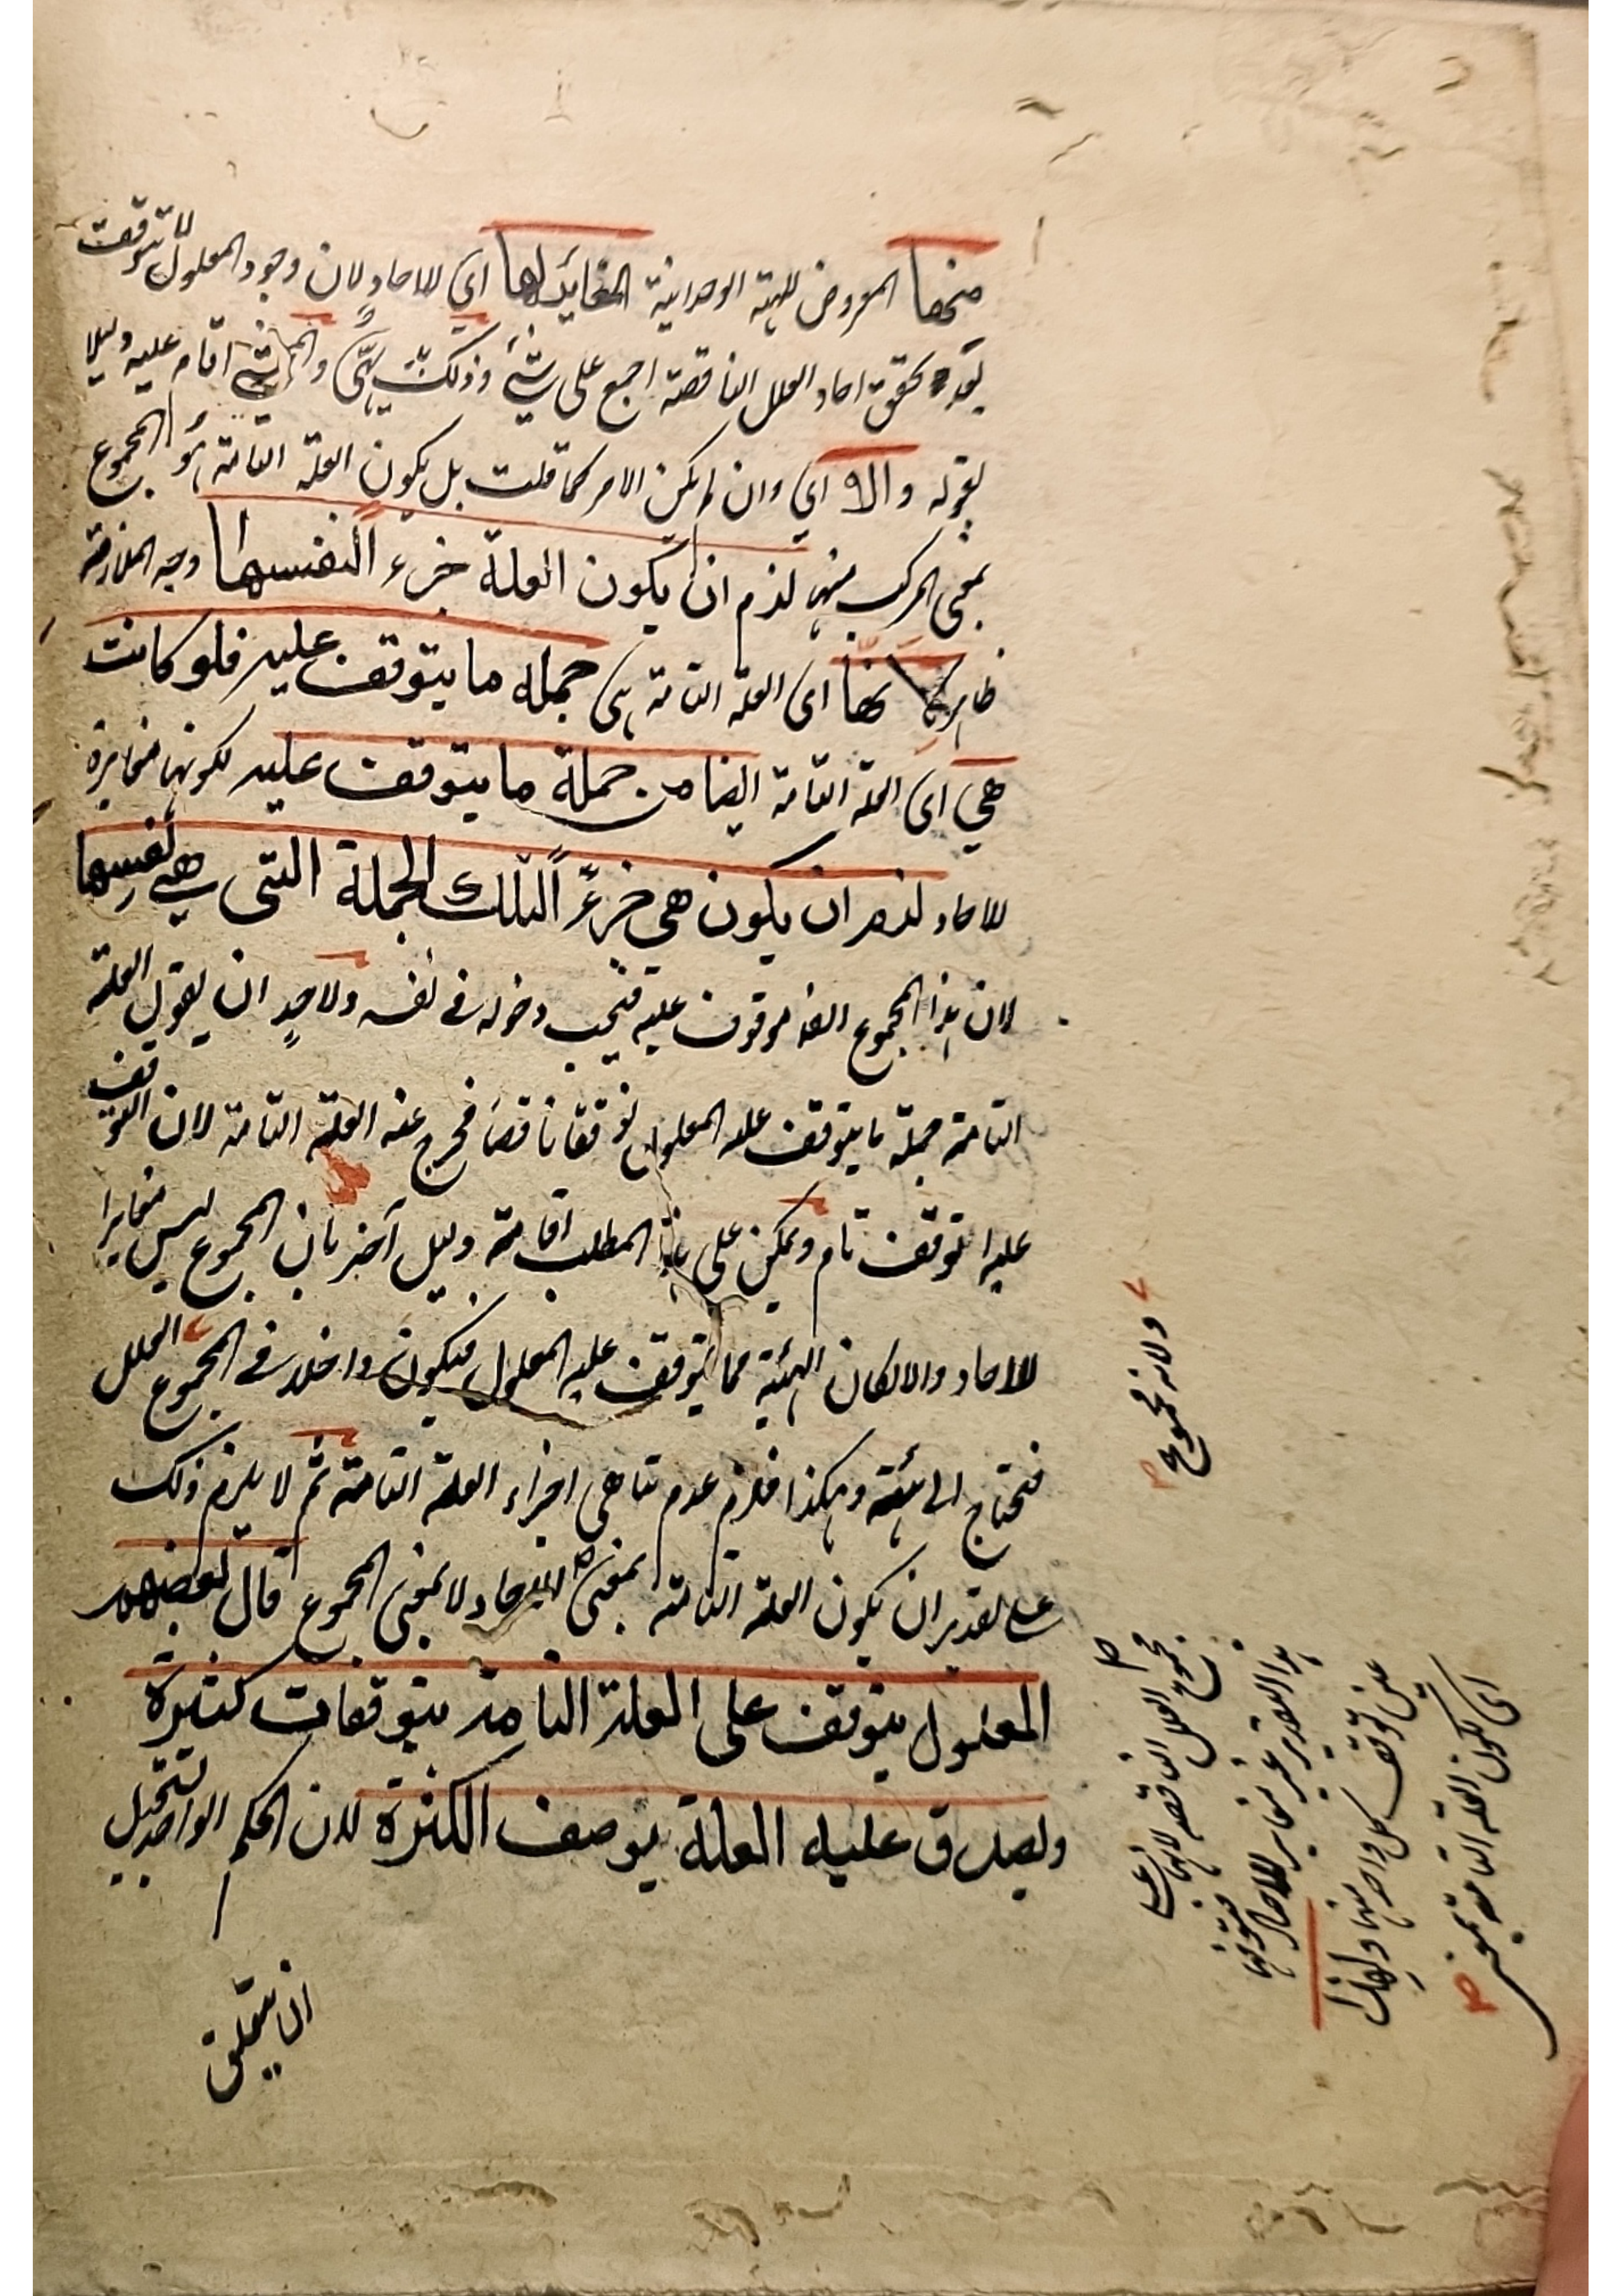 منها المعروض للهيئة الوحدانية المغايرة لها اي للاحاد لان وجود المعلول لا يتوقف
بعد تحقق احاد العلل الناقصة اجمع على شئ وذلك اقام عليه دليلا
بقوله والا اي وان لم يكن الامر كما قلت بل يكون العلة التامة هو المجموع
بمعنى المركب منها لزم ان يكون العلة جزء لنفسها وجه الملازمة
ظاهر لانها اى العلة التامة هى جملة ما يتوقف عليه فلو كانت
هي اى العلة التامة ايضا من جملة ما يتوقف عليه لكونها مغايرة
للاحاد لزم ان يكون هي جزءً لتلك الجملة التي هي نفسها
لان هذا المجموع ايضا موقوف عليه فيجب دخوله في نفسه ولاحدٍ ان يقول العلة
التامة جملة ما يتوقف عليه المعلول توقفا ناقصا فخرج عنه العلة التامة لان التوقف
عليها توقف تام ويمكن على هذا المطلب اقامة دليل آخر بان المجموع ليس مغايرا
للاحاد والا لكان الهيئة مما يتوقف عليه المعلول فيكون داخلا في المجموع العلل
فتحتاج الى هيئة وهكذا فلزم عدم تناهي اجزاء العلة التامة ثم لا يلزم ذلك
على تقدير ان يكون العلة التامة بمعنى الاحاد لا بمعنى المجموع قال بعضهم
المعلول يتوقف على العلة التامة بتوقفات كثيرة
ويصدق عليه العلة بوصف الكثرة لان الحكم الواحد يستحيل
ان يتعلق
ولانه مجموع
مجموع العلل الناقصة لانها على
هذا التقدير غير مغاير للاحاد فتوقفها
عين توقف كل واحد منها ولهذا
اى لكون العلة التامة بمعنى